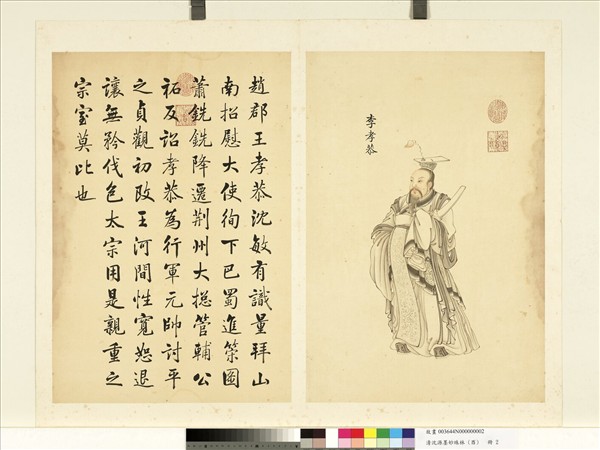 李孝恭
趙郡王孝恭沈敏有識量拜山
南招慰大使徇下巴蜀進策圖
蕭銑銑降遷荊州大總管輔公
祏反詔孝恭為行軍元帥討平
之貞觀初改王河間性寬恕退
讓無矜伐色太宗用是親重之
宗室莫比也
故畫 003644N000000002
清沈源墨妙珠林(酉) 冊 2